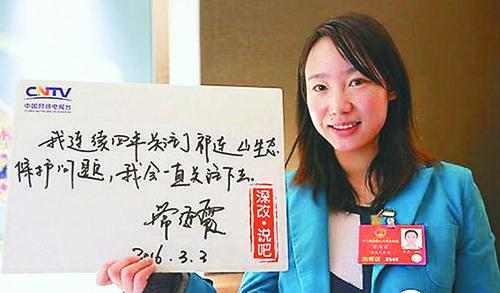 CNTV
中国网络电视台
我连续四年关注了祁连山生态
保护问题，我会一直关注下去。
常海霞
2016.3.3
深改·说吧
出席证